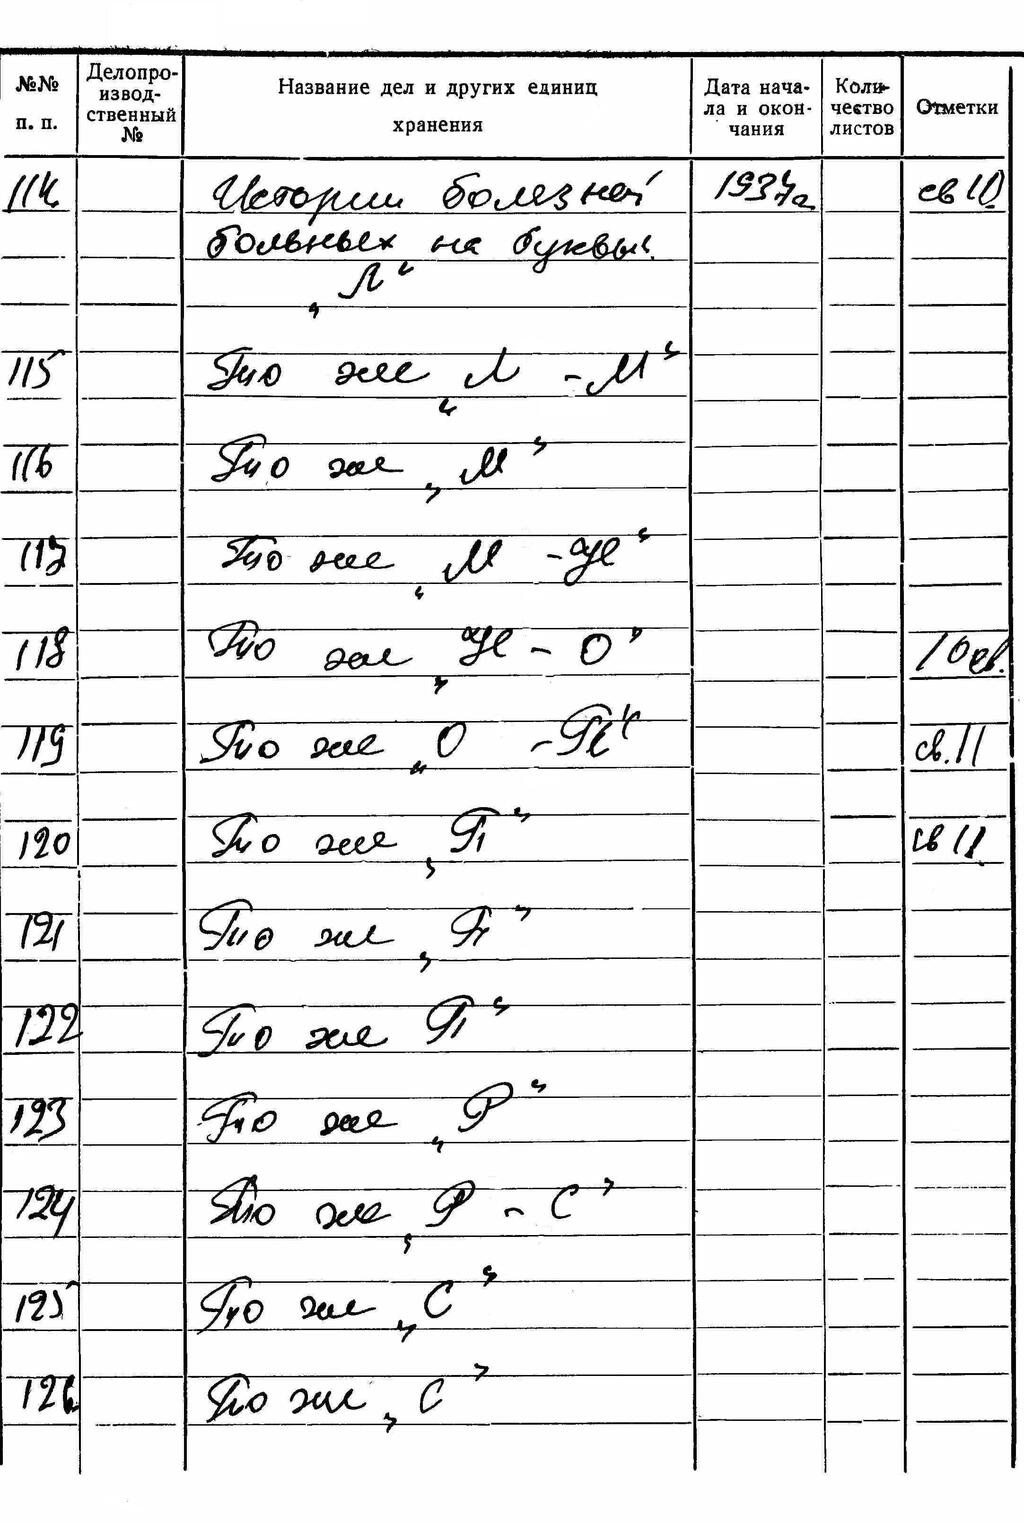 №№ п. п. Делопро-изводственный № Название дел и других единиц хранения Дата начала и окончания Количество листов Отметки
114 Истории болезней 1937г св 10
больных на буквы
„Л“
115 То же „Л - М“
116 То же „М“
117 То же „М - Н“
118 То же „Н - О“ 10 св.
119 То же „О - П“ св. 11
120 То же „П“ св 11
121 То же „П“
122 То же П“
123 То же „Р“
124 То же „Р - С“
125 То же „С“
126 То же „С“